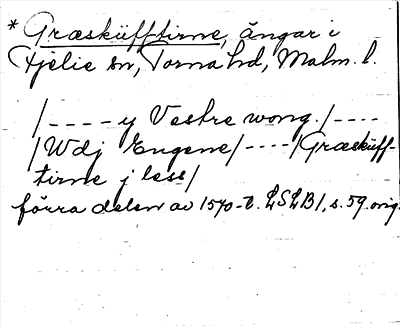 * Græsküfftirne, ängar i
Fjelie sn, Torna hd, Malm. l.
/ - - - - y Vestre wong. / - - - -
/ Wdj Engene / - - - - / Græsküff-
tirne j less /
förra delen av 1570-t. LSLB 1, s. 59. orig.